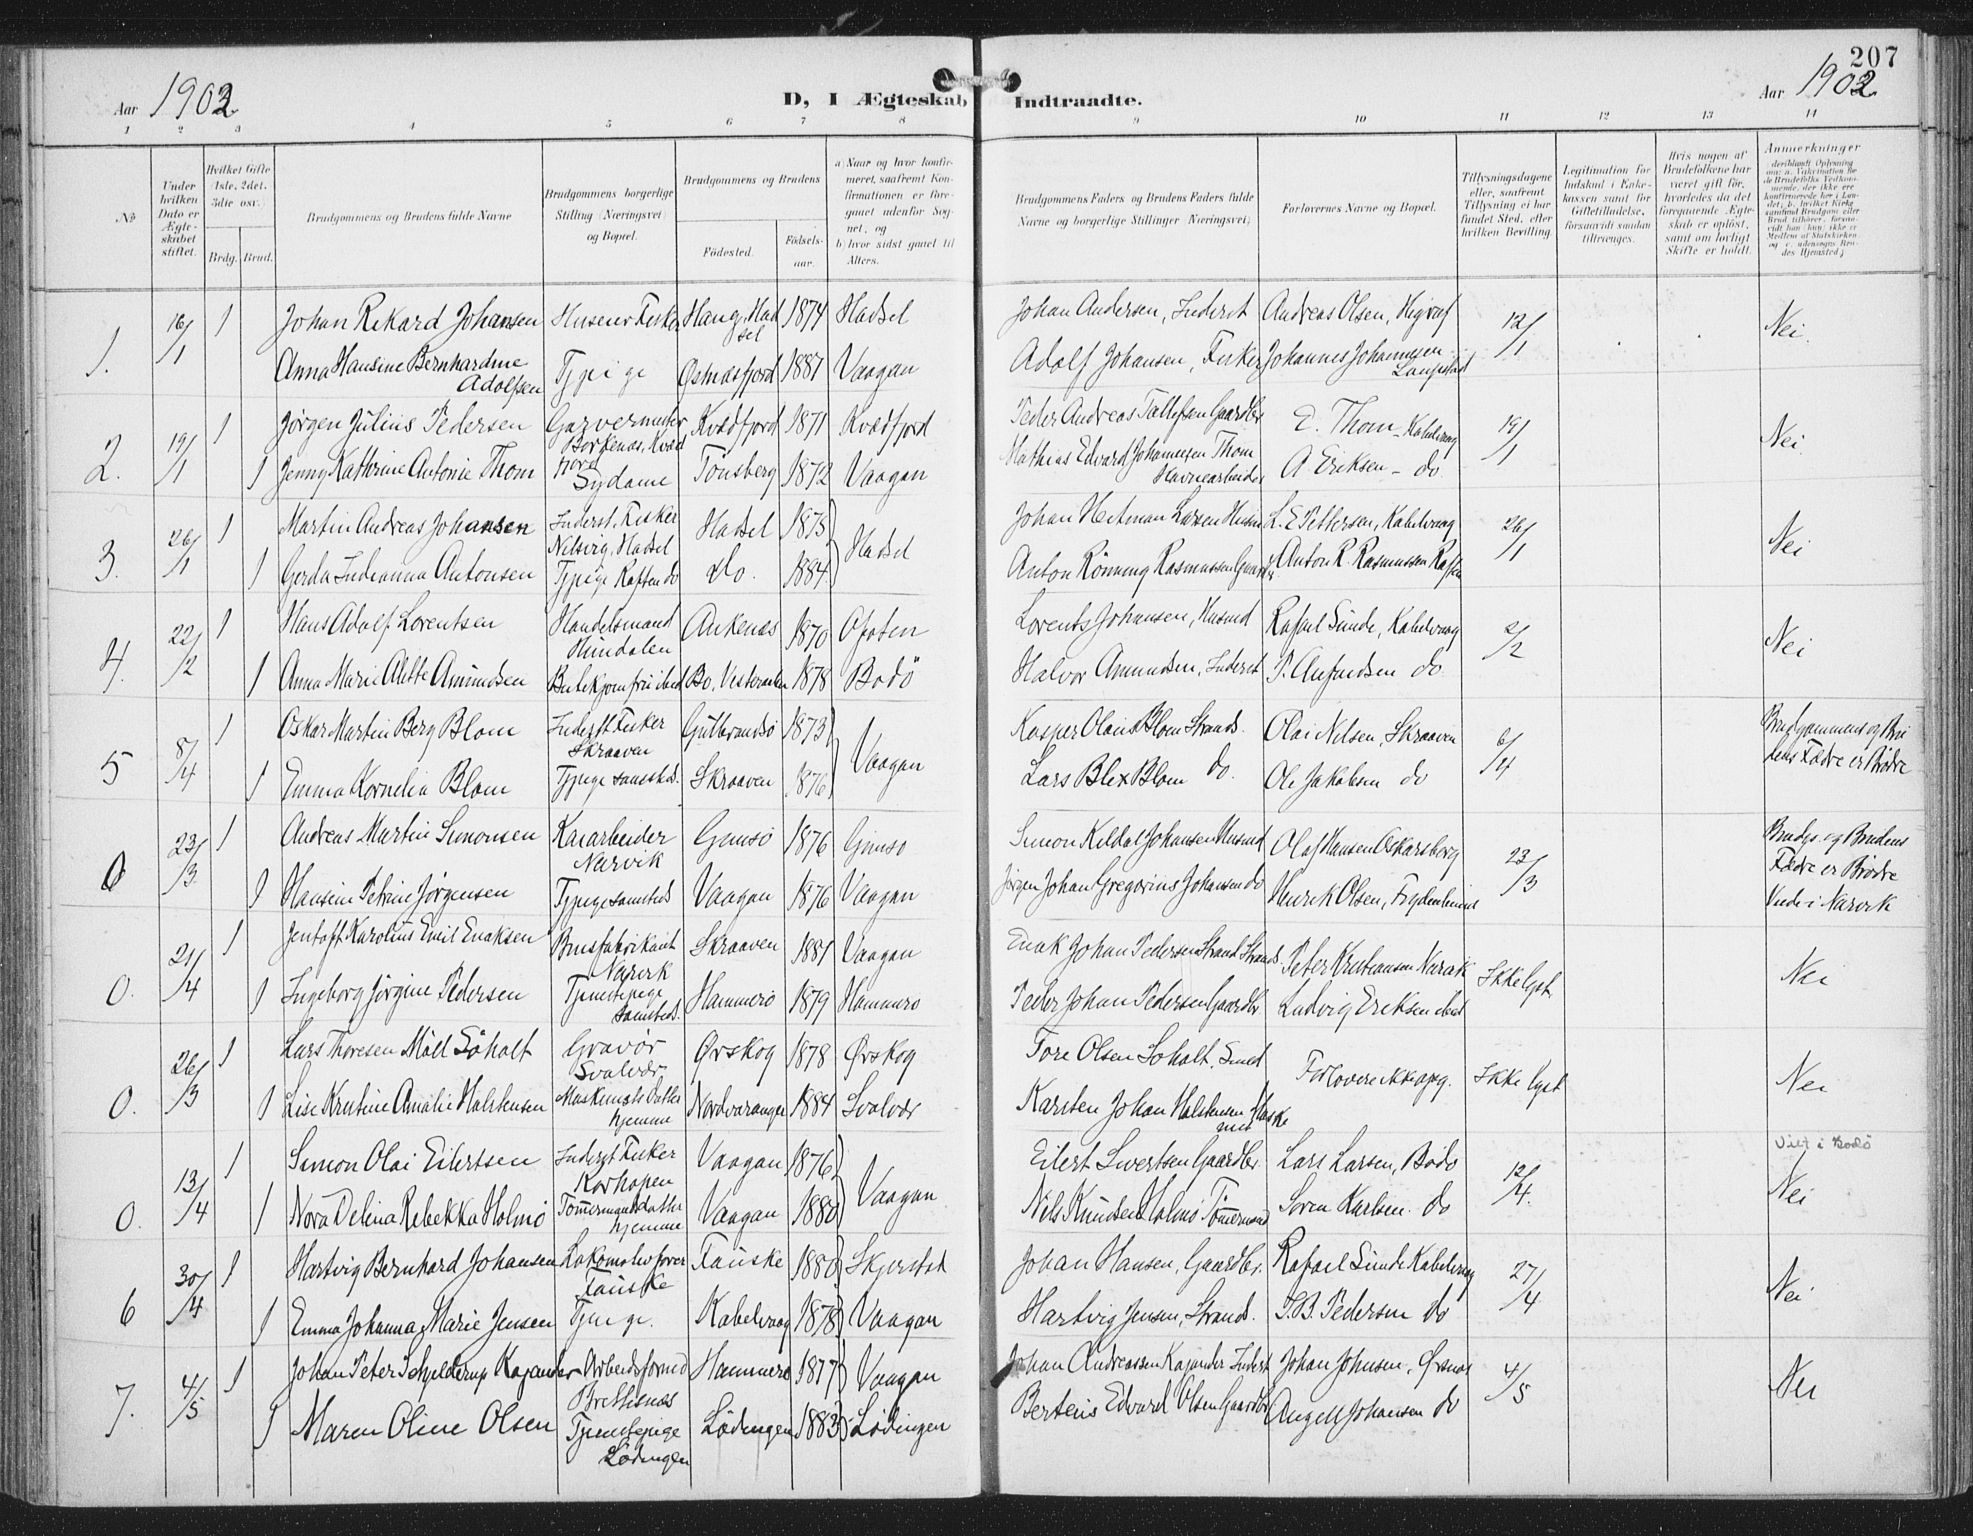 207
Aar 1902
D, I Ægteskab Indtraadte.
Aar 1902
1 2 3 4 5 6 7 8 9 10 11 12 13 14
No
Under hvilken Dato er Ægteskabet stiftet.
Hvilket Gifte (1ste, 2det, 3die osv.)
Brdg. Brud.
Brudgommens og Brudens fulde Navne
Brudgommens borgerlige Stilling (Næringsvei) og Bopæl.
Brudgommens og Brudens
Fødested.
Fødselsaar.
a) Naar og hvor konfirmeret, saafremt Konfirmationen er foregaaet udenfor Sognet, og
b) hvor sidst gaaet til Alters.
Brudgommens Faders og Brudens Faders fulde Navne og borgerlige Stillinger (Næringsvei)
Forlovernes Navne og Bopæl.
Tillysningsdagene eller, saafremt Tillysning ei har fundet Sted, efter hvilken Bevilling.
Legitimation for Indskud i Enkekassen samt for Giftetilladelse, forsaavidt saadan tiltrænges.
Hvis nogen af Brudefolkene har været gift før, hvorledes da det foregaaende Ægteskab er opløst, samt om lovligt Skifte er holdt.
Anmerkninger
1. 16/1 1 Johan Rikard Johansen Husener Fisker Haug, Hadsel 1874 Hadsel Johan Andersen, Inderst Andreas Olsen, Higrav 12/1 Nei.
Anna Hansine Bernhardine Adolfsen Tjpige Østnæsfjord 1881 Vaagan Adolf Johansen, Fisker Johannes Johannesen Laupstad
2. 19/1 1 Jørgen Julius Pedersen Garvermester Borkenæs, Kvædfjord Kvædfjord 1871 Kvædfjord Peder Andreas Tollefsen Gaardbr E. Thom - Kabelvaag 19/1 Nei
1 Jenny Kathrine Antonie Thom Sydame Tønsberg 1872 Vaagan Mathias Edvard Johannesen Thom Havnearbeider A. Eriksen - do
3. 26/1 1 Martin Andreas Johansen Inderst, Fisker Hadsel 1875 Hadsel Johan Hetman Larsen Husm L. E Pettersen, Kabelvaag 26/1 Nei
1 Gerda Indianna Antonsen Tjpige Raften do Do. 1884 Anton Rönning Rasmussen Anton R. Rasmussen Raften
4. 22/2 1 Hans Adolf Lorentsen Handelsmand Ankenæs 1870 Ofoten Lorents Johansen, Husmd Rafael Sunde, Kabelvaag 2/2 Nei
1 Anna Marie Alette Amundsen Butikjomfru ibid Bø, Vesteraalen 1878 Bodö Halvor Amundsen, Inderst do
5 8/4 1 Oskar Martin Berg Blom Inderst Fisker Skraaven Gulbrandsø 1873 Vaagan Kasper Olai Blom Strands. Olai Nilsen, Skraaven 6/4 Brudgommens og Brudens Fædre er Brødre
1 Emma Kornelia Blom Tjpige samsteds. Skraaven 1876 Lars Blix Blom do. Ole Jakobsen do
0 23/3 1 Andreas Martin Simonsen Kaiarbeider Narvik Gimsø 1876 Gimsø Simon Kildal Johansen Husmd Olaf Hansen Oskarsborg 23/3 Brudgs. og Brudens Fædre er Brødre Viede i Narvik
1 Hansine Petrine Jørgensen Tjpige samsteds Vaagan 1876 Vaagan Jørgen Johan Gregorius Johansen do Henrik Olsen, Frydenlund
0. 21/4 1 Jentoft Karolius Emil Enoksen Brusfabrikant Narvik Skraaven 1881 Vaagan Enok Johan Pedersen Strand Strands Peter Kristiansen Narvik Ikke lyst. Nei
1 Ingeborg Jörgine Pedersen Tjenestepige samsteds. Hammerø 1879 Hammerø Peder Johan Pedersen Gaardbr. Ludvig Eriksen ibid
0. 26/3 1 Lars Thoresen Möll Söholt Gravör Svolvær Ørskog 1878 Ørskog Tore Olsen Soholt, Smed Forlovere ikke opg. Ikke lyst Nei
1 Lise Kristine Amalie Halstensen Maskinists Datter hjemme Nordvaranger 1884 Svolvær Karsten Johan Halstensen Maskinist
0. 13/4 1 Simon Olai Eilertsen Inderst Fisker Korhopen Vaagan 1876 Vaagan Eilert Sivertsen Gaardbr. Lars Larsen, Bodø 12/4. Viet i Bodø Nei
1 Nora Delina Rebekka Holmø Tømmermand datter hjemme Vaagan 1880 Nils Knudsen Holmø Tømmermand Soren Karlsen do
6 30/4 1 Hartvig Bernhard Johansen Lokomotivfører Fauske Fauske 1880 Skjerstad Johan Hansen, Gaardbr. Rafael Sunde Kabelvaag 27/4 Nei
1 Emma Johanna Marie Jensen Tjpige. Kabelvaag 1878 Vaagan Hartvig Jensen, Strands. P. B. Pedersen do
7. 4/5 1 Johan Peter Schjelderup Kajander Arbeidsformd Brettesnæs Hammerø 1877 Vaagan Johan Andreassen Kajander Inderst Johan Johnsen, Ørsnæs 4/5 Nei
1 Maren Oline Olsen Tjenestepige Lødingen Lødingen 1883 Lödingen Bertens Edvard Olsen Gaardbr Angell Johansen do